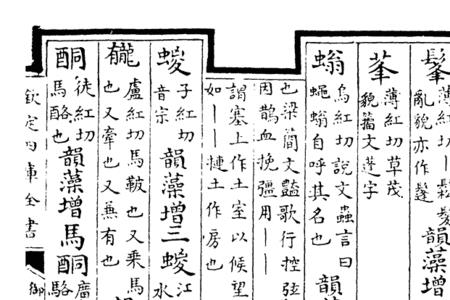 髼薄紅切丨鬆髮
亂貌亦作髼韻藻增
莑薄紅切草茂
貌籀文蓬字
螉烏紅切說文蟲言曰
蠅螉自呼其名也韻
也梁簡文豔歌行控弦
因鵲血挽彊用丨丨
謂塞上作土室以候望
如丨丨揵土作房也
蝬子紅切
音宗韻藻增三蝬江
水
龓盧紅切馬鞁也又乘馬
也又牽也又兼有也
酮徒紅切
馬酪也韻藻增馬酮廣
駱
欽定四庫全書
御